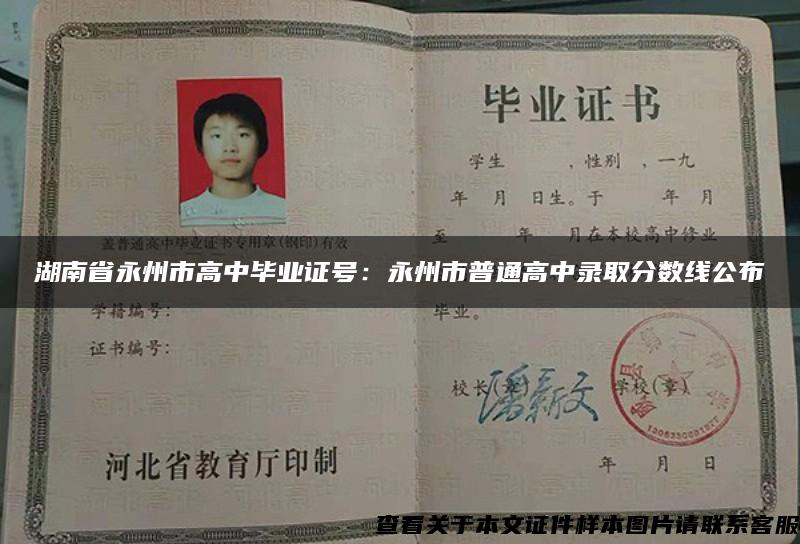 毕业证书
学生 ，性别 ，一九
年 月 日生。于 年 月
盖普通高中毕业证书专用章(钢印)有效
至 年 月在本校高中修业
湖南省永州市高中毕业证号：永州市普通高中录取分数线公布
学籍编号：
毕业。
证书编号：
校长(章) 学校(章)
潘新文
县第一中
河北省教育厅印制
年 月 日
查看关于本文证件样本图片请联系客服